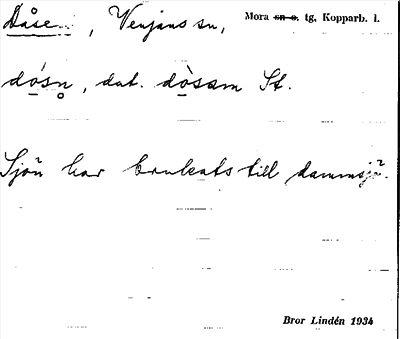 Dåsen, Venjans sn, Mora sn o. tg, Kopparb. l.
dó̱sn̥, dat. dò̱sam St.
Sjön har brukats till dammsjö.
Bror Lindén 1934